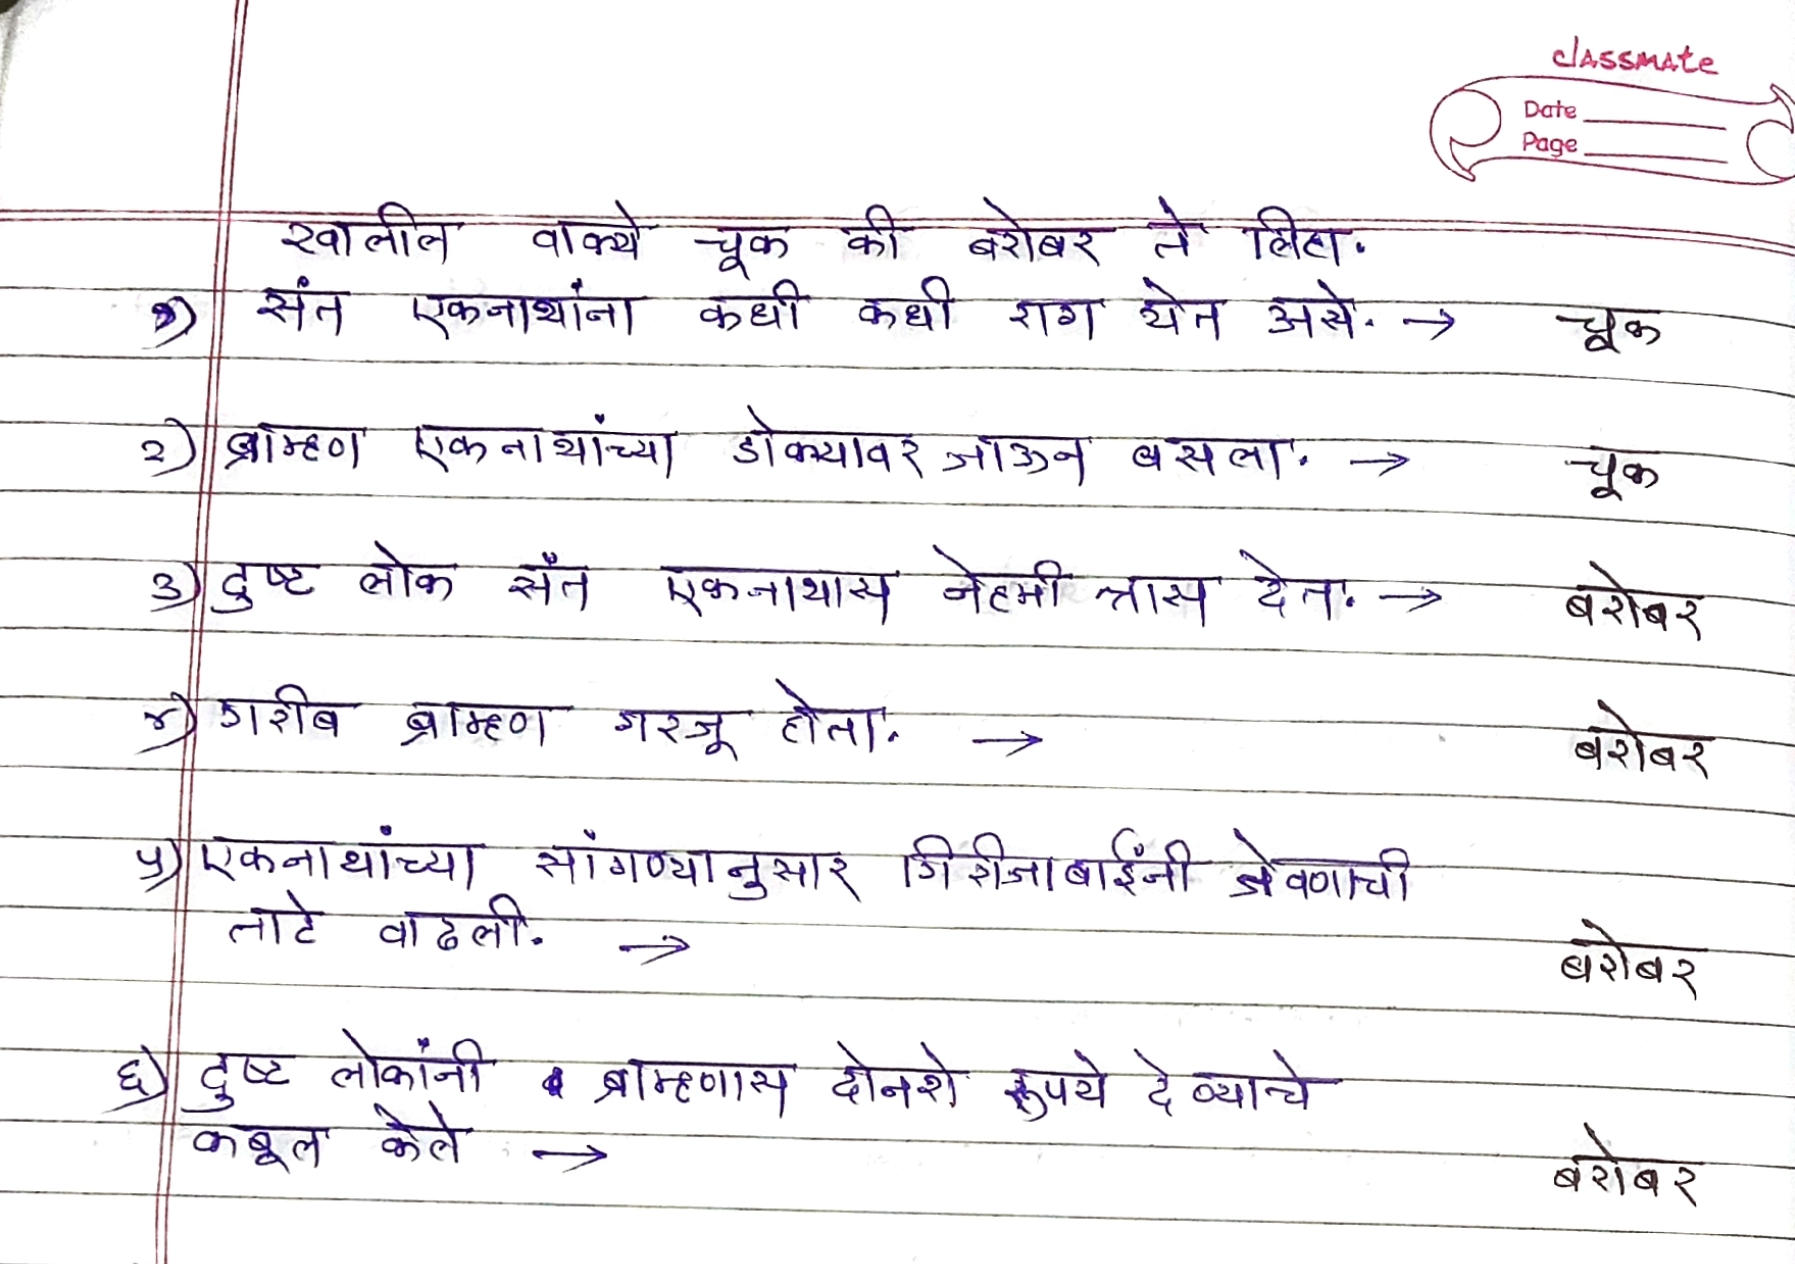 classmate
Date
Page
खालील वाक्ये चूक की बरोबर ते लिहा.
१) संत एकनाथांना कधी कधी राग येत असे. → चूक
२) ब्राम्हण एकनाथांच्या डोक्यावर जाऊन बसला. → चूक
३) दुष्ट लोक संत एकनाथास नेहमी त्रास देत. → बरोबर
४) गरीब ब्राम्हण गरजू होता. → बरोबर
५) एकनाथांच्या सांगण्यानुसार गिरीजाबाईंनी जेवणाची
ताटे वाढली. → बरोबर
६) दुष्ट लोकांनी ब्राम्हणास दोनशे रुपये देण्याचे
कबूल केले → बरोबर